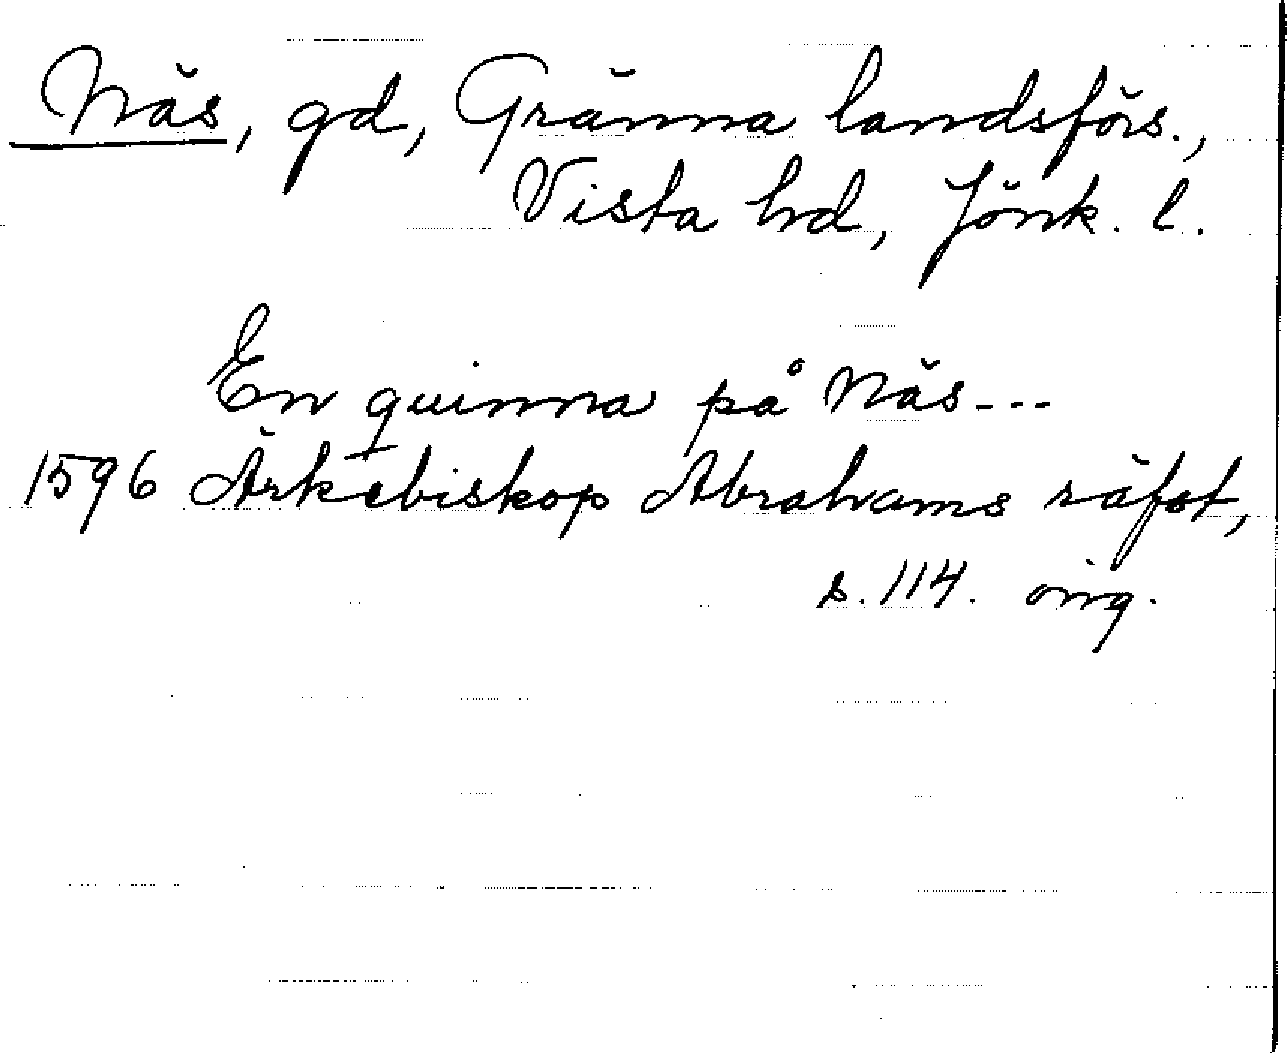 Näs, gd, Gränna landsförs.,
Vista hd, Jönk. l.
En quinna på Näs ---
1596 Ärkebiskop Abrahams räfst,
s. 114. orig.